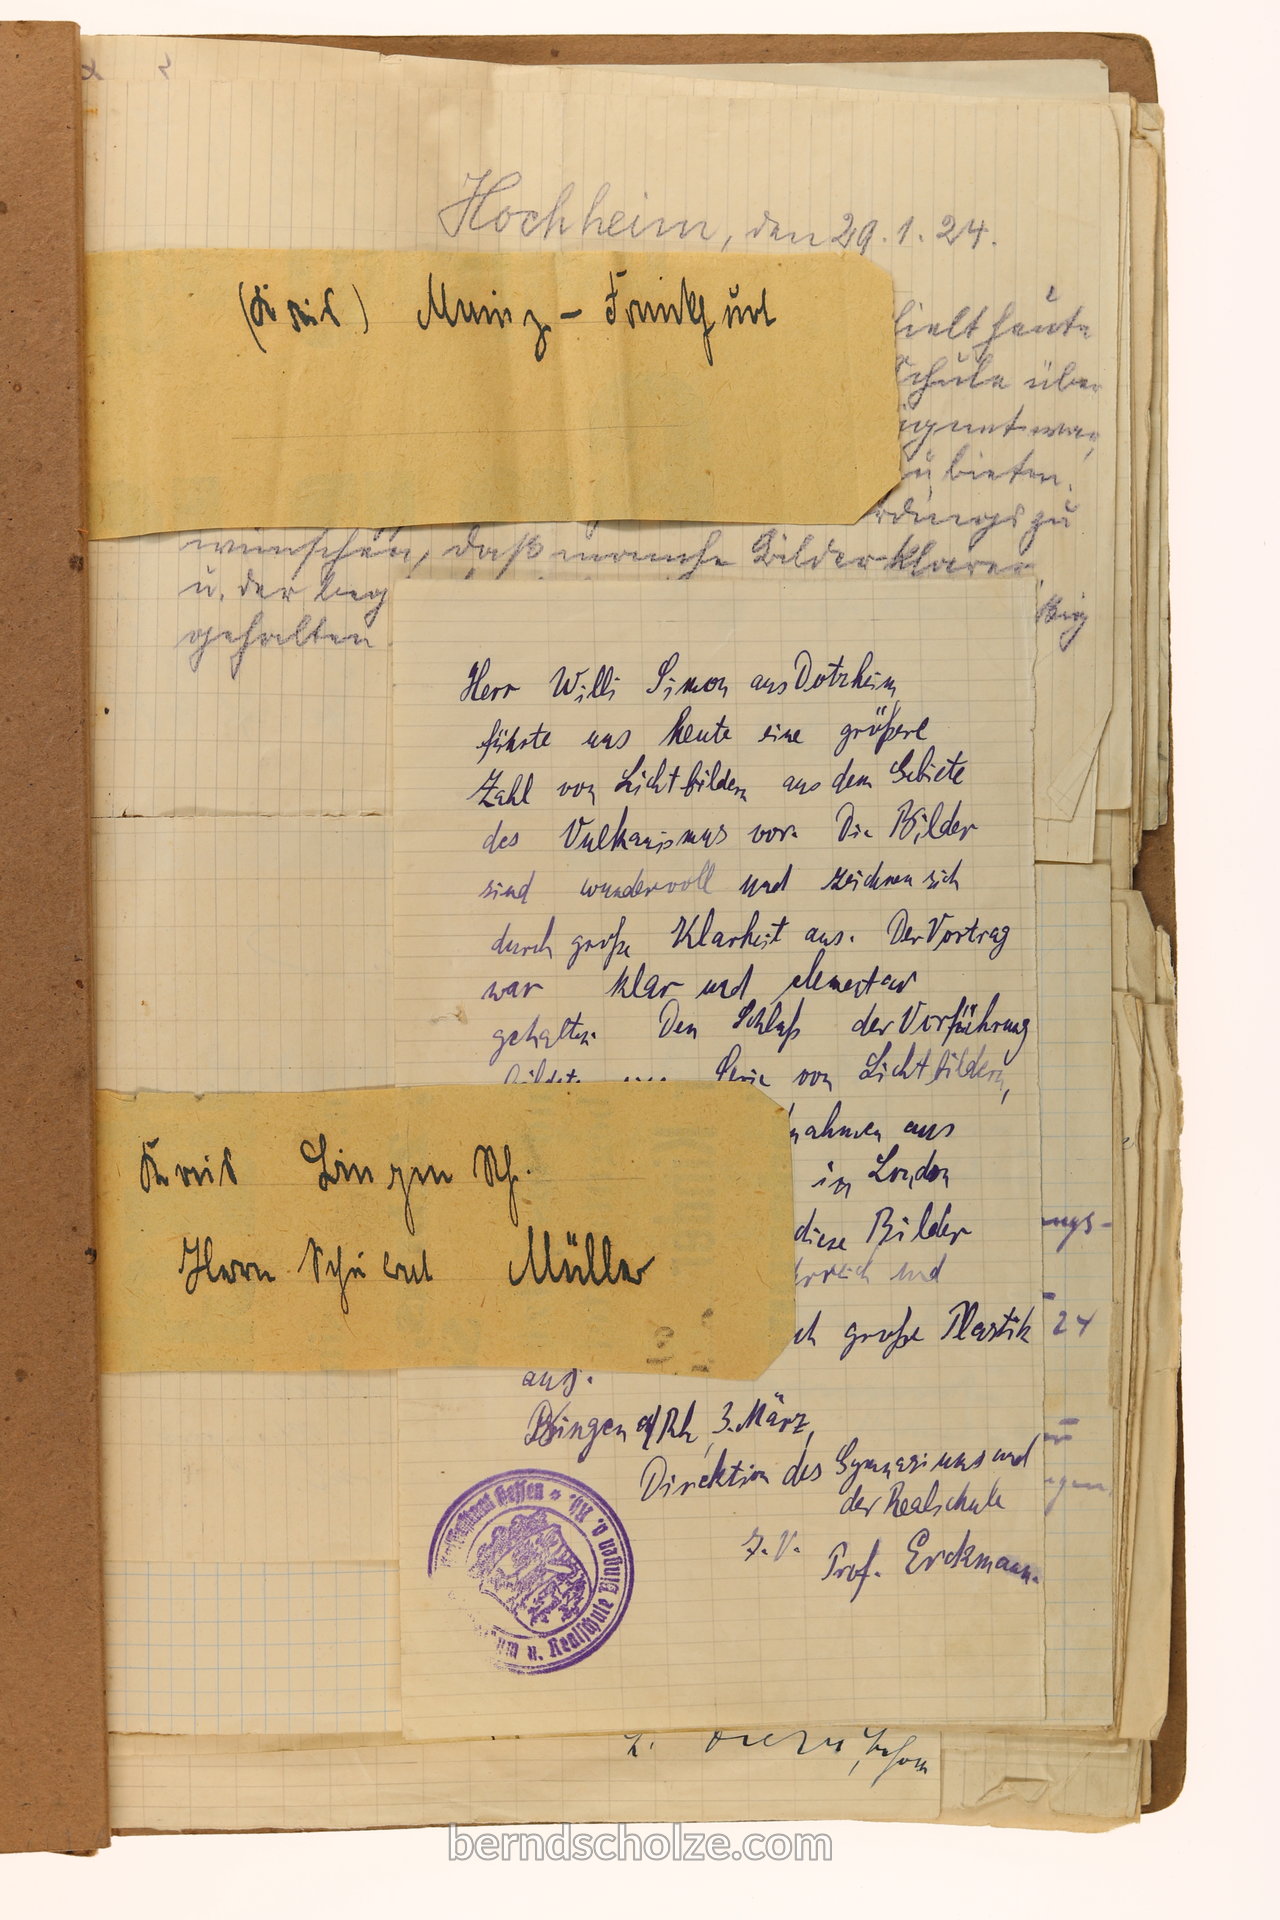 Hochheim, den 29.1.24.
(Kreis) Mainz - Frankfurt
hielt heute
Schule über
zu bieten.
wünschen, daß manche Bilder klarer
u. der
gehalten
Herr Willi Simon aus Dotzheim
führte uns heute eine größere
Zahl von Lichtbildern aus dem Gebiete
des Vulkanismus vor. Die Bilder
sind wundervoll und zeichnen sich
durch große Klarheit aus. Der Vortrag
war klar und elementar
gehalten. Den Schluß der Vorführung
bildete eine Serie von Lichtbildern,
nahmen aus
in London
diese Bilder
und
große Plastik
aus.
Kreis Bingen Rh.
Herrn Müller
24
Bingen a/Rh, 3. März,
Direktion des Gymnasiums und
der Realschule
J.V.
Prof. Erckmann.
Hessen * u. Realschule Bingen a. Rh.
berndscholze.com